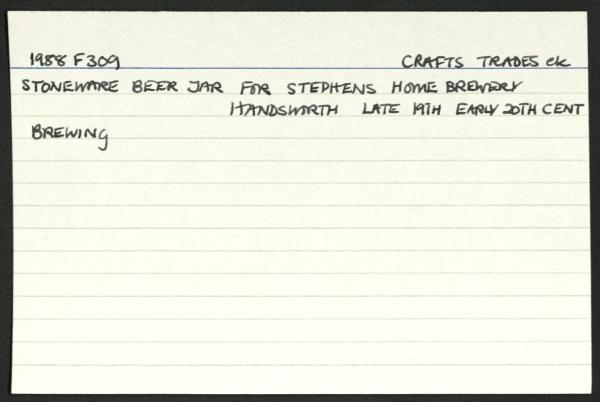 1988 F309 CRAFTS TRADES etc
STONEWARE BEER JAR FOR STEPHENS HOME BREWERY
HANDSWORTH LATE 19TH EARLY 20TH CENT
BREWING